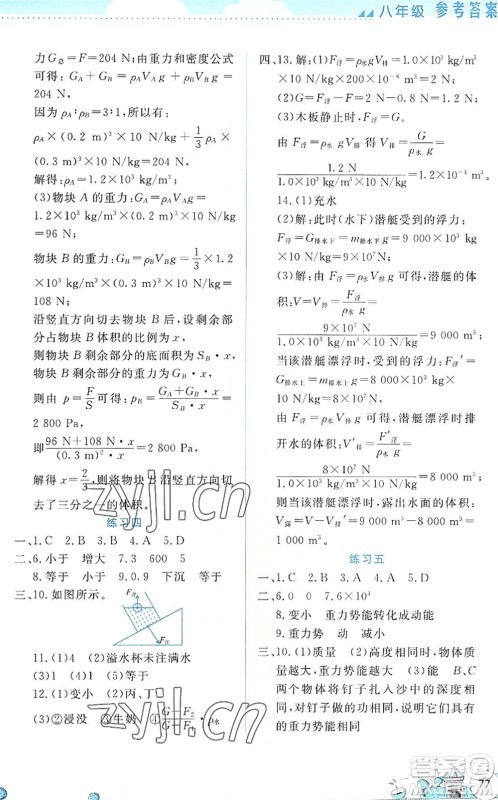 八年级 参考答案
力G总=F=204 N，由重力和密度公式
可得：GA+GB=ρAVAg+ρBVBg=
204 N，
因为 ρA∶ρB=3∶1，所以有：
ρA×(0.2 m)³×10 N/kg+1/3
ρA×(0.3 m)³×10 N/kg=204 N，
解得：ρA=1.2×10³ kg/m³。
(3)物块 A 的重力：GA=ρAVAg=
1.2×10³ kg/m³×(0.2 m)³×10 N/kg
=96 N；
物块 B 的重力：GB=ρBVBg=1/3×1.2×
10³ kg/m³×(0.3 m)³×10 N/kg=
108 N，
沿竖直方向切去物块 B 后，设剩余部
分占物块 B 的体积的比例为 x，
则物块 B 剩余部分的底面积 SB·x；
物块 B 剩余部分的重力为 GB·x，
则由 p=F/S 可得：p=(GA+GB·x)/(SB·x)=
2 800 Pa，
即(96 N+108 N·x)/((0.3 m)²·x)=2 800 Pa，
解得 x=2/3，则将物块 B 沿竖直方向切
去了三分之一的体积。
练习四
一、1.C 2.B 3.A 4.A 5.A
二、6.小于 增大 7.3 600 5
8.等于 小于 9.0.9 下沉 等于
三、10.如图所示。
F浮
F压
11.(1)4 (2)溢水杯未注满水
(3)1 (4)1 (5)等于
12.(1)变小 (2)丙、丁
(3)②浸没 ③牛奶 ④(G-F2)/(G-F1)·ρ水
四、13.解：(1)F浮=ρ水gV排=1.0×10³ kg/m³
×10 N/kg×200×10⁻⁶ m³=2 N。
(2)G=F浮-F=2 N-0.8 N=1.2 N。
(3)木板静止时，F浮=G，
由 F浮=ρ水gV排 得 V排=G/(ρ水g)=
1.2 N/(1.0×10³ kg/m³×10 N/kg)=1.2×10⁻⁴ m³。
14.(1)充水
(2)解：此时(水下)潜艇受到的浮力：
F浮=G排水下=m排水下g=9 000×10³ kg
×10 N/kg=9×10⁷ N。
(3)解：由 F浮=ρ水gV排可得，潜艇的体
积：V=V排=F浮/(ρ水g)=
9×10⁷ N/(1.0×10³ kg/m³×10 N/kg)=9 000 m³；
当该潜艇漂浮时，受到的浮力：F浮′=
G排水上=m排水上g=8 000×10³ kg×
10 N/kg=8×10⁷ N，当该潜艇漂浮时排
开水的体积：V′排=F浮′/(ρ水g)=
8×10⁷ N/(1.0×10³ kg/m³×10 N/kg)=8 000 m³，
当该潜艇漂浮时，露出水面的体积：
V露=V-V′排=9 000 m³-8 000 m³=
1 000 m³。
练习五
一、1.C 2.D 3.D 4.B 5.A
二、6.C 7.6×10³
8.变小 重力势能转化成动能
9.重力势 动 减小
三、10.(1)质量 (2)高度相同时，物体质
量越大，重力势能越大 (3)能 B、C
两个物体将钉子扎入沙中的深度相
同，对钉子做的功相同，故两个物体
的重力势能相同
zyjl.cn
zyjl.cn
答案圈
77